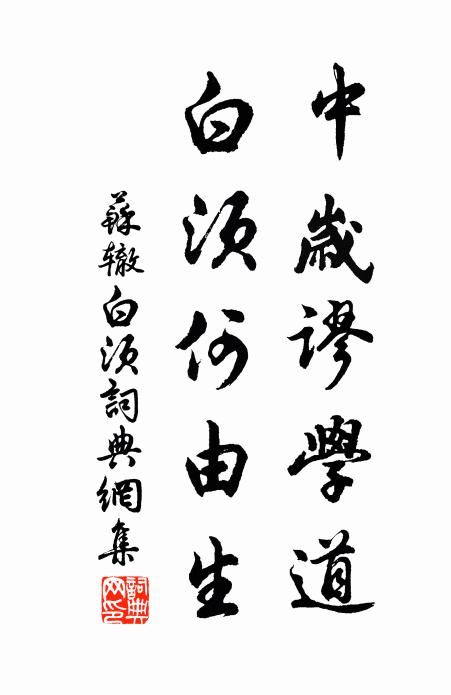 中歲謬學道
白須何由生
蘇辙白须詞典網集
詞典網印